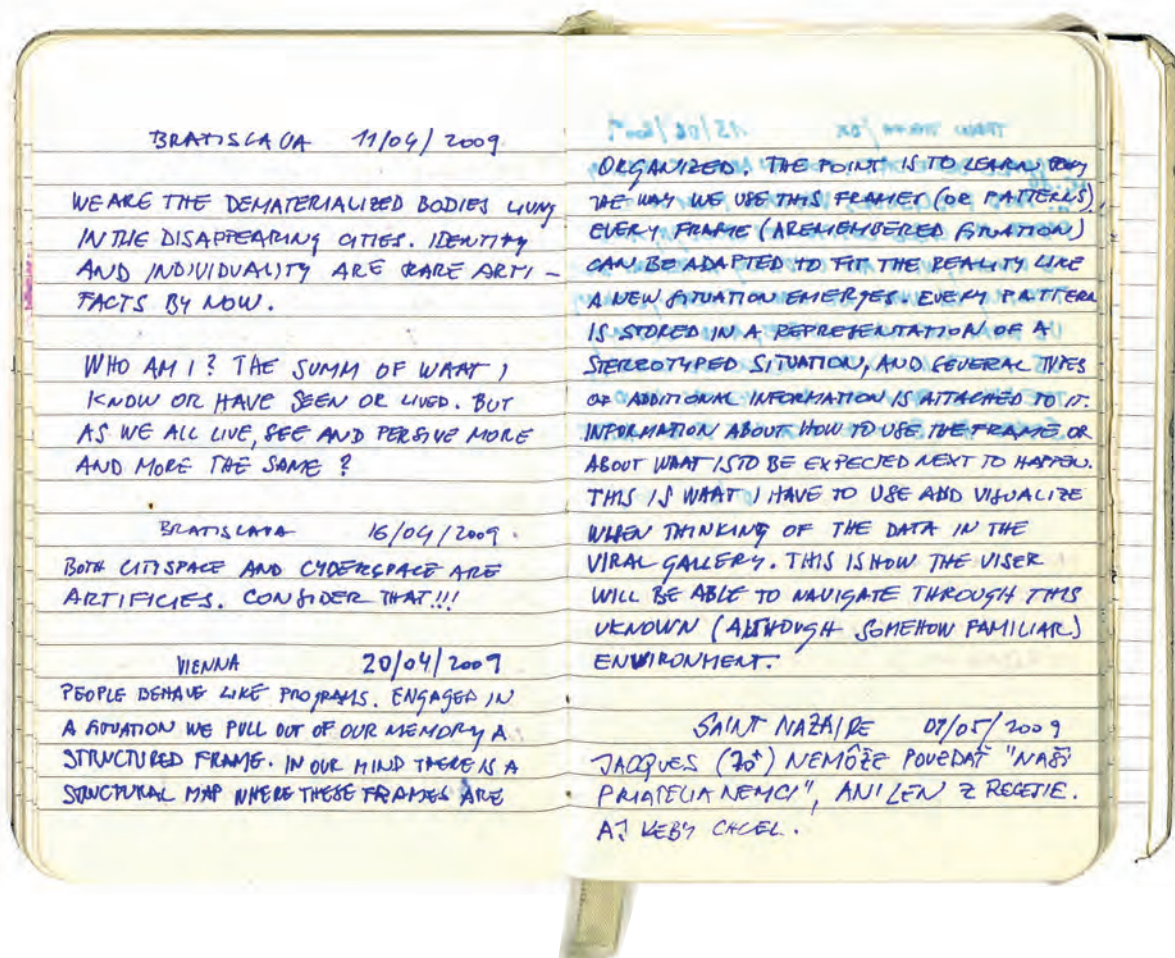 BRATISLAVA 11/04/2009
WE ARE THE DEMATERIALIZED BODIES LIVING
IN THE DISAPPEARING CITIES. IDENTITY
AND INDIVIDUALITY ARE RARE ARTI-
FACTS BY NOW.
WHO AM I? THE SUMM OF WHAT I
KNOW OR HAVE SEEN OR LIVED. BUT
AS WE ALL LIVE, SEE AND PERSIVE MORE
AND MORE THE SAME?
BRATISLAVA 16/04/2009.
BOTH CITYSPACE AND CYBERSPACE ARE
ARTIFICIES. CONSIDER THAT!!!
VIENNA 20/04/2009
PEOPLE BEHAVE LIKE PROGRAMS. ENGAGED IN
A SITUATION WE PULL OUT OF OUR MEMORY A
STRUCTURED FRAME. IN OUR MIND THERE IS A
STRUCTURAL MAP WHERE THESE FRAMES ARE
ORGANIZED. THE POINT IS TO LEARN
THE WAY WE USE THIS FRAMES (OR PATTERNS),
EVERY FRAME (A REMEMBERED SITUATION)
CAN BE ADAPTED TO FIT THE REALITY LIKE
A NEW SITUATION EMERGES. EVERY PATTERN
IS STORED IN A REPRESENTATION OF A
STEREOTYPED SITUATION, AND SEVERAL TYPES
OF ADDITIONAL INFORMATION IS ATTACHED TO IT.
INFORMATION ABOUT HOW TO USE THE FRAME OR
ABOUT WHAT IS TO BE EXPECTED NEXT TO HAPPEN.
THIS IS WHAT I HAVE TO USE AND VISUALIZE
WHEN THINKING OF THE DATA IN THE
VIRAL GALLERY. THIS IS HOW THE VISER
WILL BE ABLE TO NAVIGATE THROUGH THIS
UKNOWN (ALTHOUGH SOMEHOW FAMILIAR)
ENVIRONMENT.
SAINT NAZAIRE 07/05/2009
JACQUES (70+) NEMÔŽE POVEDAŤ "NAŠI
PRIATELIA NEMCI", ANI LEN Z RECEPTIE.
AJ KEBY CHCEL.